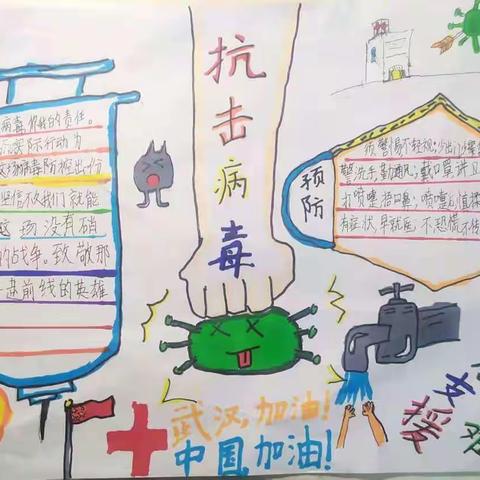 病毒,你我的责任。
实际行动为
病毒防控出份
坚信不久我们就能
这场没有硝
的战争。致敬那
前线的英雄
抗击病毒
预防
警惕不轻视;少出门少聚
勤洗手勤通风;戴口罩讲卫
打喷嚏捂口鼻;喷嚏后慎揉
有症状早就医,不恐慌不传
武汉,加油!
中国,加油!
支援